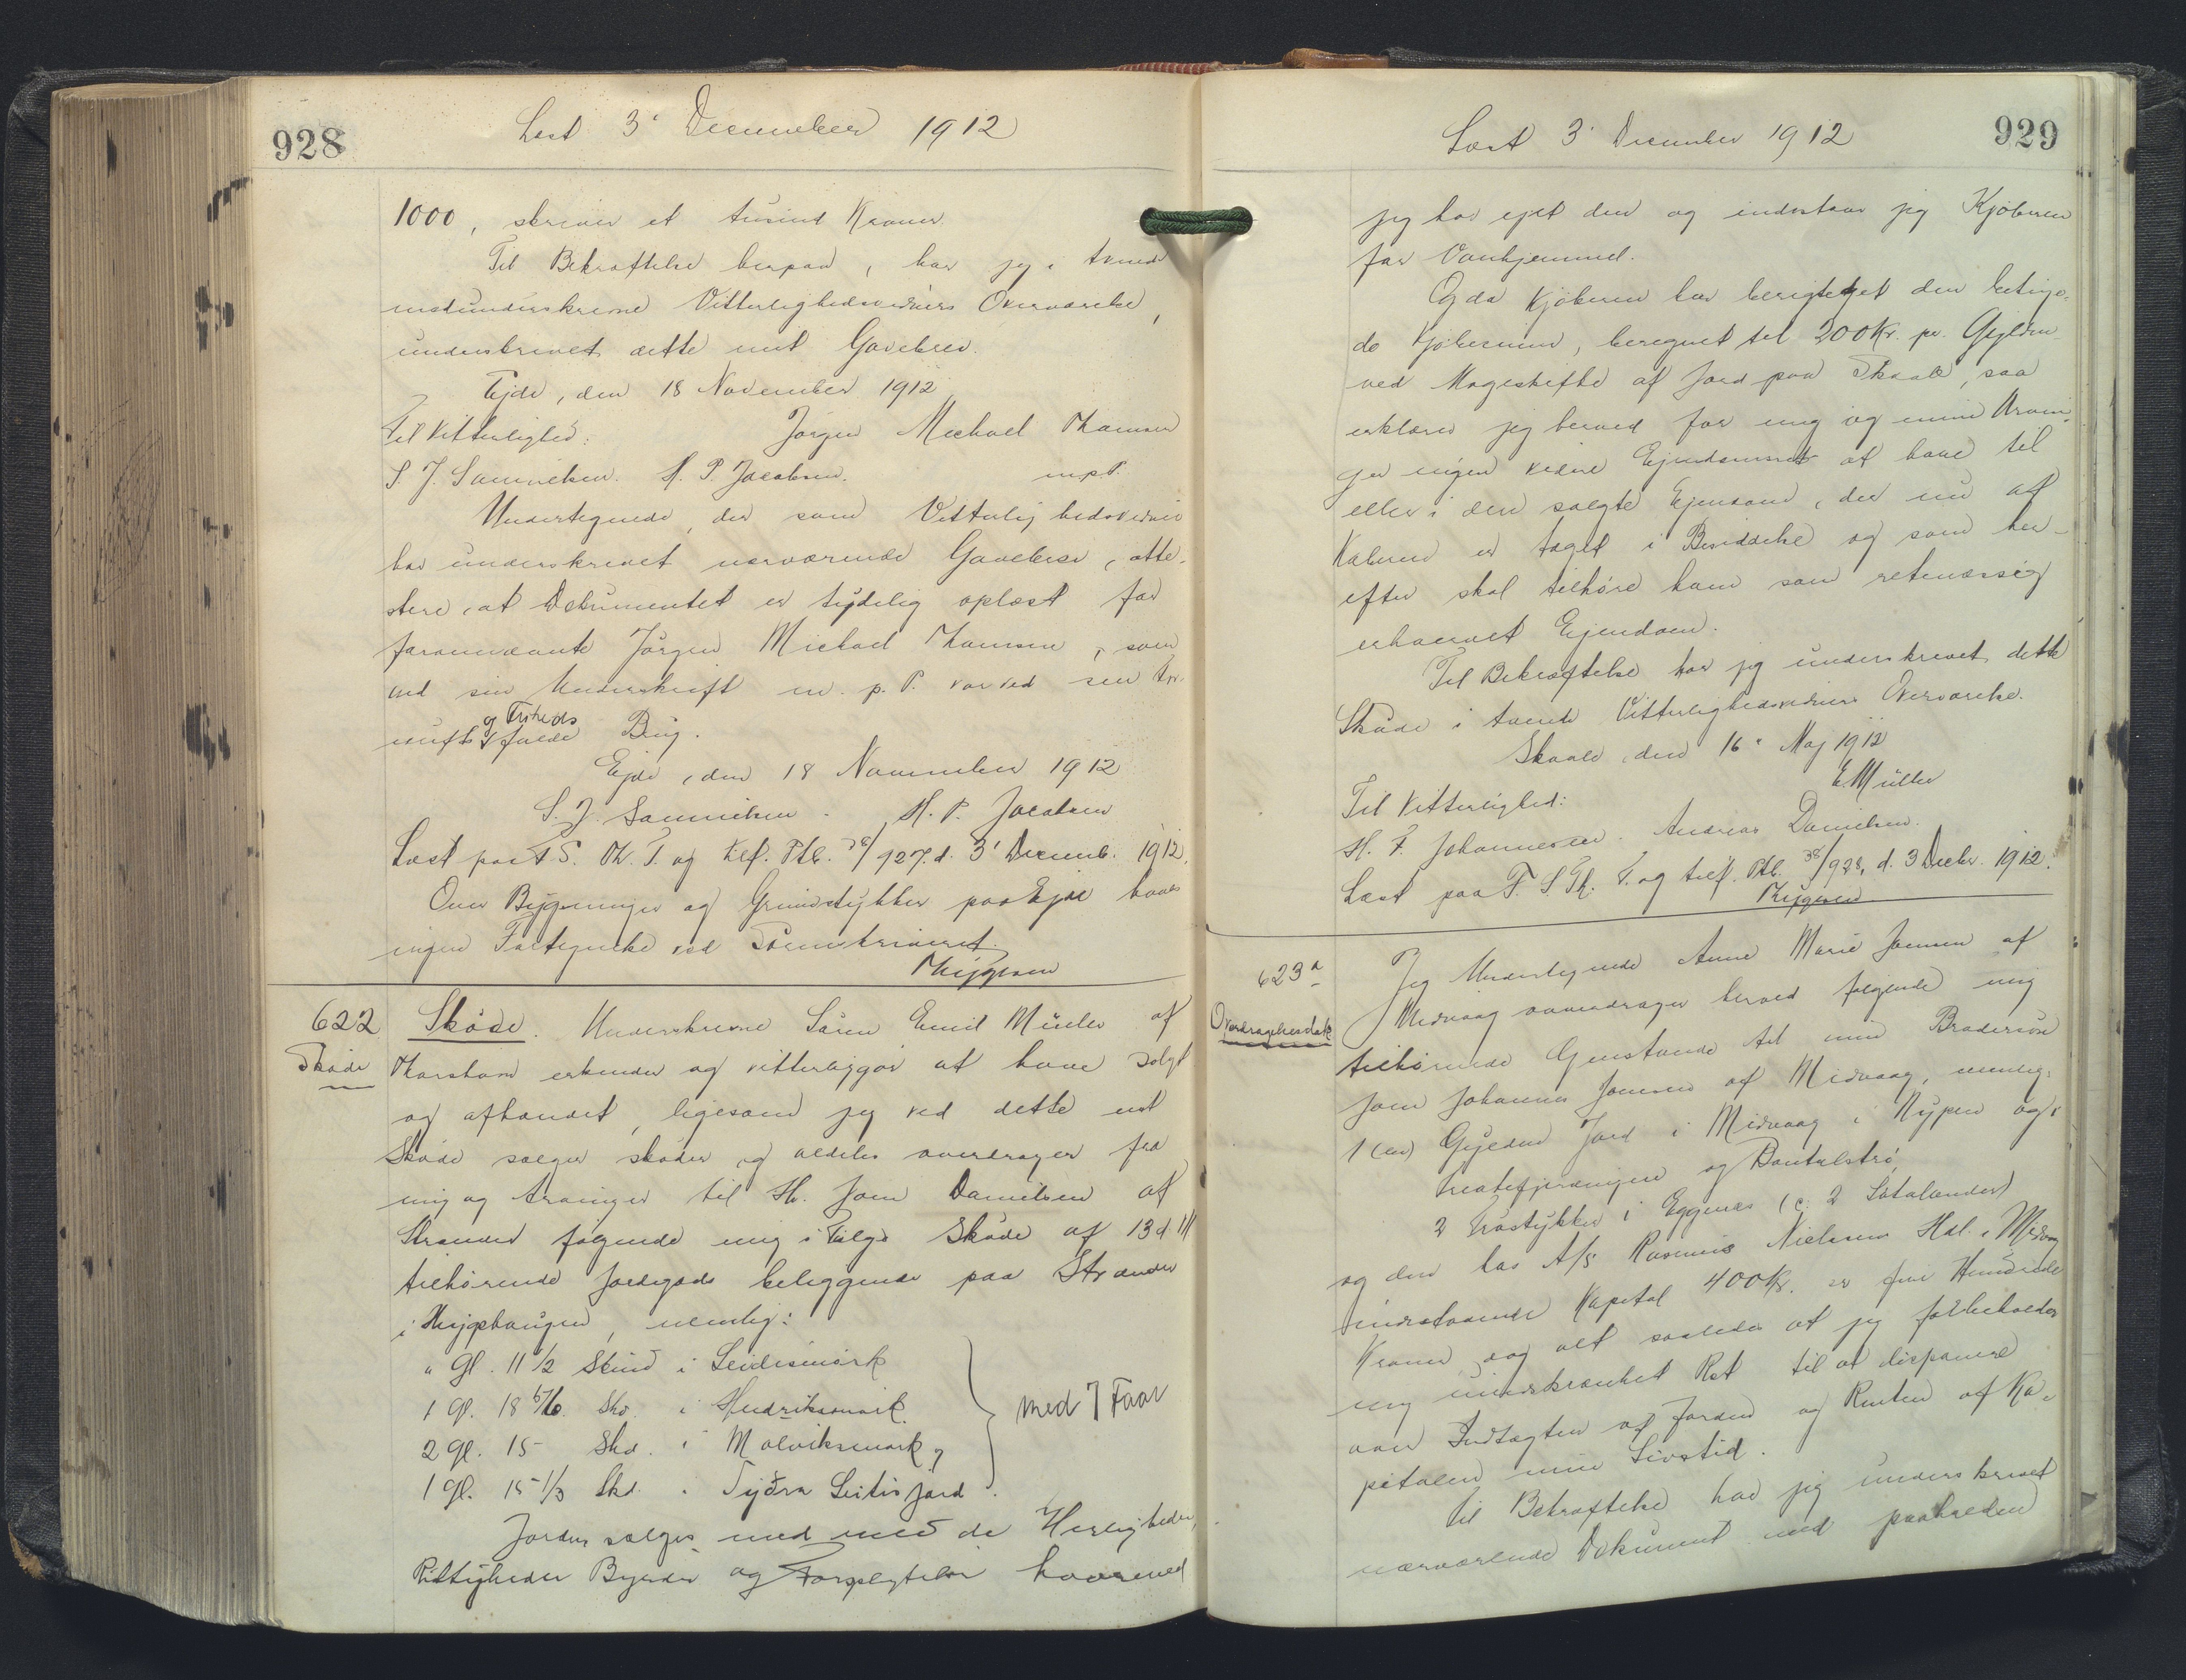 928
Læst 3' December 1912
1000, skriver et tusind Kroner.
Til Bekræftelse herpaa, har jeg i tvende
medunderskrevne Vitterlighedsvidners Overværelse,
underskrevet dette mit Gavebrev.
Ejde, den 18 November 1912
Til Vitterlighed: Jørgen Michael Thomsen
S. J. Samuelsen. H. P. Jacobsen. mpP.
Undertegnede, der som Vitterlighedsvidner
har underskrevet nærværende Gavebrev, atte-
stere, at Dokumentet er tydelig oplæst for
fornævnte Jørgen Michael Thomsen, som
ved sin Underskrift m. p. P. var ved sin For-
nufts og Friheds fulde Brug.
Ejde, den 18 November 1912
S. J. Samuelsen. H. P. Jacobsen
Læst paa F. S. Th. T. og tilf. Ptb. 38/927. d. 3' Decemb. 1912.
Over Bygninger og Grundstykker paa Ejde haves
ingen Fortegnelse ved Sorenskriveriet.
622
Skøde
Skøde. Underskrevne Sören Emil Müller af
Thorshavn erkender og vitterliggör at have solgt
og afhændet, ligesom jeg ved dette mit
Skøde sælger skøder og aldeles overdrager fra
mig og Arvinger til Hr. Joen Danielsen af
Strænder følgende mig i Følge Skøde af 13 d M
tilhørende Jordegods beliggende paa Strænder
i , nemlig:
" Gl. 11 1/2 Skind i
1 Gl. 18 Skd. i Hendriksmørk
2 Gl. 15 Skd. i Malviksmørk og
1 Gl. 15 1/3 Skd. i Sydra Leitisjord.
med 7 Faar
Jorden sælges med med de Herligheder,
Rettigheder Byrder og Forpligtelser hvormed
929
Læst 3' December 1912
jeg har ejet den og indestaar jeg Kjøberen
for Vanhjemmel.
Og da Kjøberen har berigtiget den betinge-
de Kjøbesum, beregnet til 200 Kr. pr. Gylden
ved Mageskifte af Jord paa Skaale, saa
erklærer jeg herved for mig og mine Arvin-
ger ingen videre Ejendomsret at have til
eller i den solgte Ejendom, der nu af
Køberen er taget i Besiddelse og som her-
efter skal tilhøre ham som retmæssig
erhvervet Ejendom.
Til Bekræftelse har jeg underskrevet dette
Skøde i tvende Vitterlighedsvidners Overværelse.
Skaale, den 16' Maj 1912
E. Müller
Til Vitterlighed:
H. F. Johannesen. Andreas Danielsen.
Læst paa F. S. Th. T. og tilf. Ptb. 38/928, d. 3 Decbr. 1912.
623a
Overdragelsesdok
Jeg Undertegnede Anne Marie Joensen af
Midvaag overdrager herved følgende mig
tilhørende Genstande til min Brodersøn
Joen Johannes Joensen af Midvaag, nemlig:
1 (en) Gylden Jord i Midvaag i Nypen og i
og
2 Trøstykker i Eggenæs (c. 2
og den hos A/S Rasmus Nielsens Hdl. i Midvaag
indestaaende Kapital 400 Kr. er fire Hundrede
Kroner og alt saaledes at jeg forbeholder
mig uindskrænket Ret til at disponere
over Indtægten af Jorden og Renten af Ka-
pitalen min Livstid.
Til Bekræftelse har jeg underskrevet
nærværende Dokument med paaholden